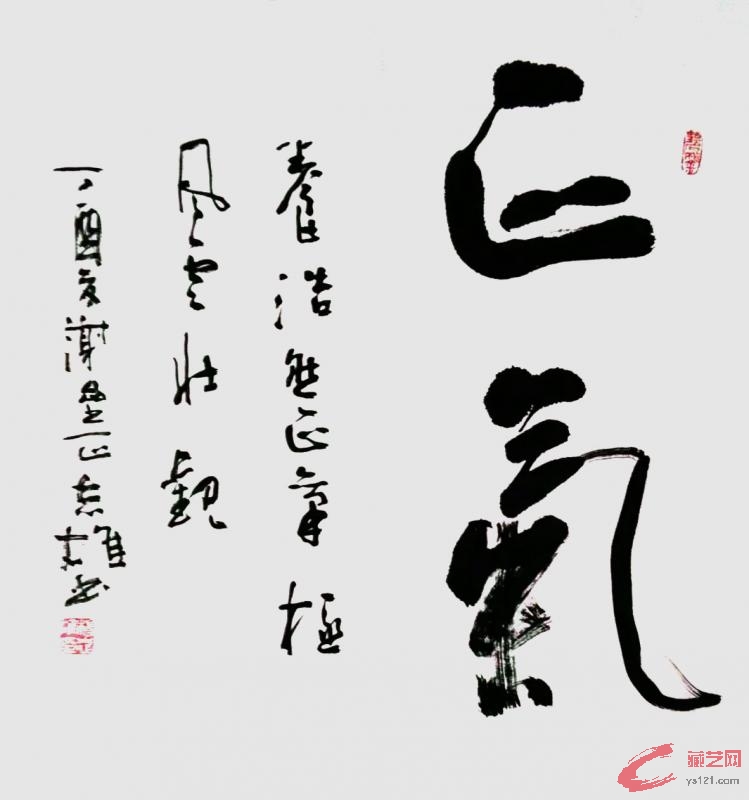 正氣
養浩然正氣極
風雲壯觀
丁酉 謝 正志雄書
藏艺网
ys121.com